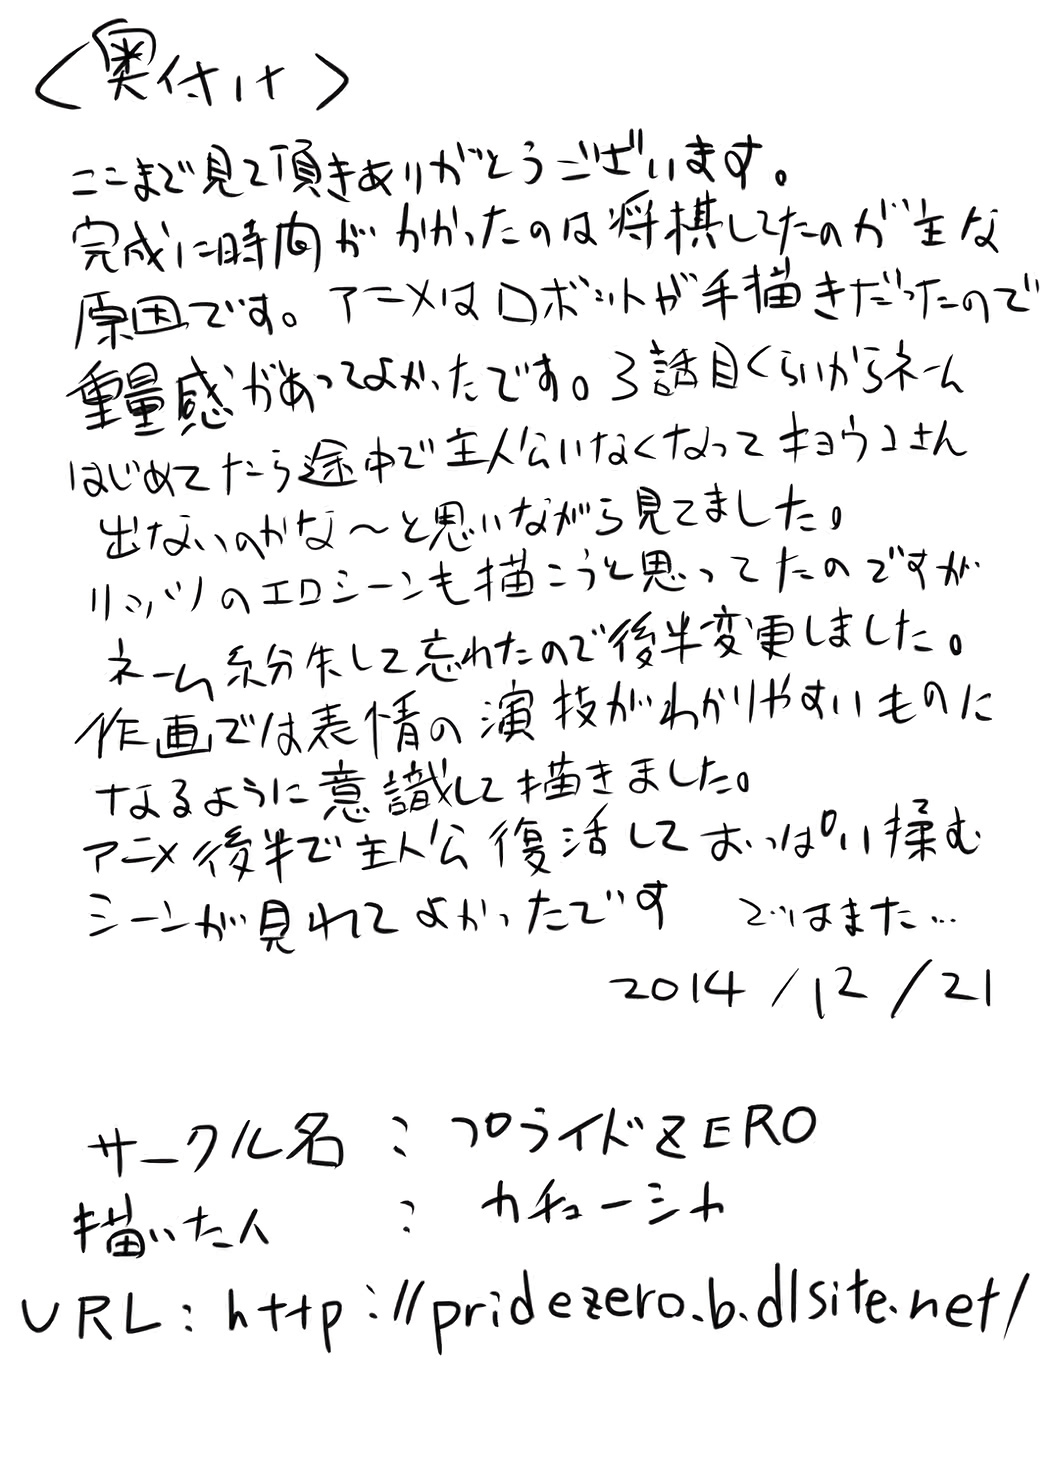 <奥付け>
ここまで見て頂きありがとうございます。
完成に時間がかかったのは将棋してたのが主な
原因です。アニメはロボットが手描きだったので
重量感があってよかったです。3話目くらいからネーム
はじめてたら途中で主人公いなくなってキョウコさん
出ないのかな～と思いながら見てました。
リッツのエロシーンも描こうと思ってたのですが
ネーム紛失して忘れたので後半変更しました。
作画では表情の演技がわかりやすいものに
なるように意識して描きました。
アニメ後半で主人公復活しておっぱい揉む
シーンが見れてよかったです ではまた…
2014/12/21
サークル名：プライドZERO
描いた人：カチューシャ
URL：http://pridezero.b.dlsite.net/